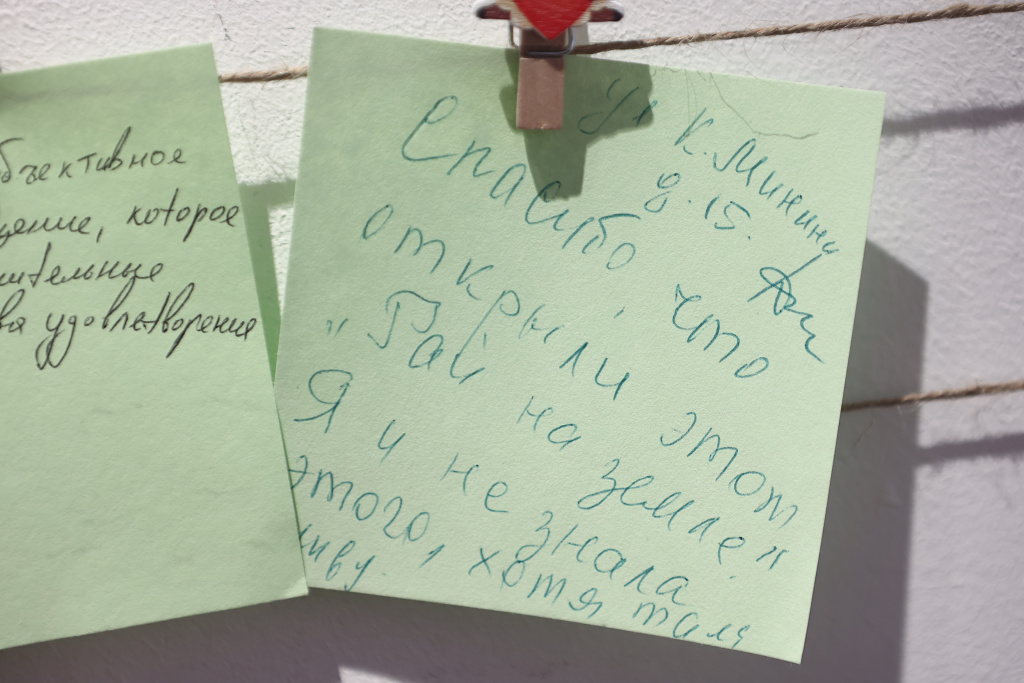 бъективное
щение, которое
ительные
ва удовлетворение
ул К. Минину
д. 15.
Спасибо, что
открыли этот
"Рай на земле"
Я и не знала
этого, хотя
живу.